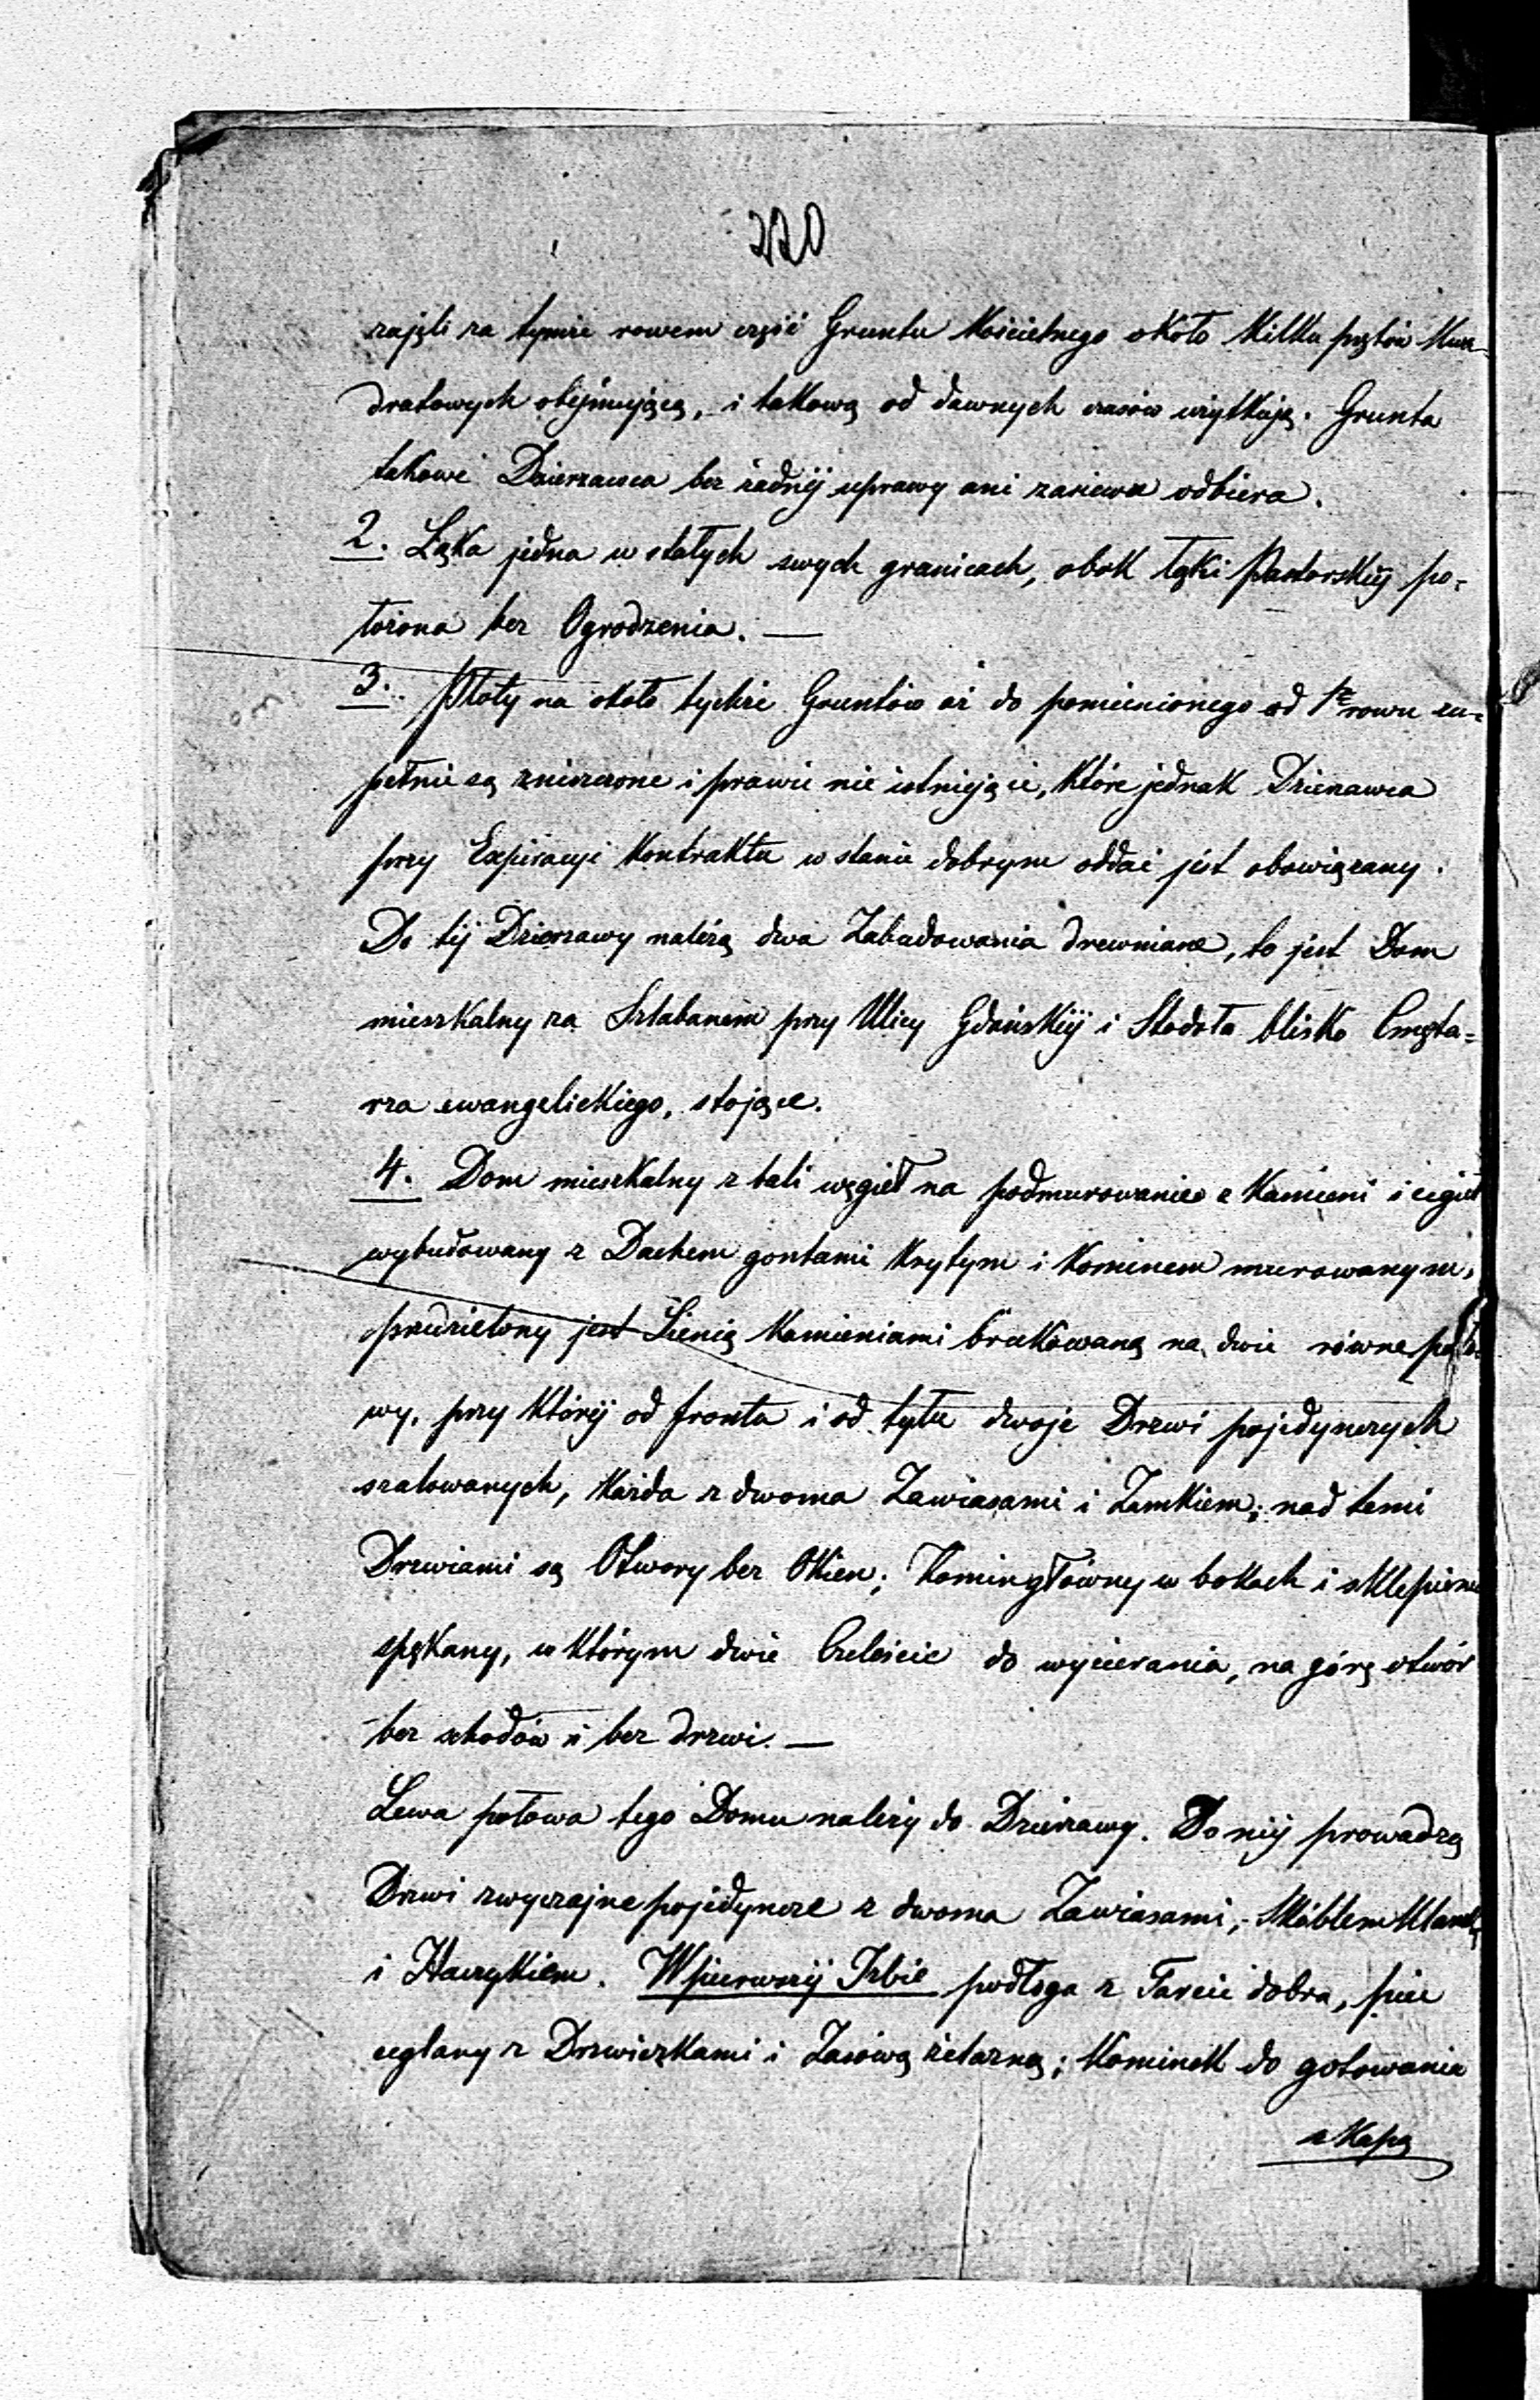 220
zajęli za tymże rowem część Gruntu Kościelnego około kilku prętów kwa-
dratowych obejmującą, i takową od dawnych czasów użytkują. Grunta
takowe Dzierzawca bez żadnéj uprawy ani zasiewu odbiera.
2. Łąka jedna w stałych swych granicach, obok łąki Pastorskiéj po=
łożona bez Ogrodzenia. —
3. Płoty na około tychże Gruntów aż do pomienionego ad 1º rowu zu=
pełnie są zniszczone i prawie nie istniejące, które jednak Dzierzawca
przy Expiracyi Kontraktu w stanie dobrym oddać jest obowiązany.
Do téj Dzierzawy należą dwa Zabudowania drewniane, to jest Dom
mieszkalny za Szlabanem przy Ulicy Gdańskiéj i Stodoła blisko Cmęta=
rza ewangelickiego, stojące.
4. Dom mieszkalny z bali węgieł na podmurowanie z Kamieni i cegieł
wybudowany z Dachem gontami krytym i Kominem murowanym,
przedzielony jest Sienią Kamieniami brukowaną na dwie równe poło-
wy, przy któréj od frontu i od tyłu dwoje Drzwi pojedynczych
szalowanych, każda z dwoma Zawiasami i Zamkiem; nad temi
Drzwiami są Otwory bez Okien; Komin główny w bokach i sklepieniu
spękany, w którym dwie Czeluście do wycierania, na górę otwór
bez schodów i bez drzwi. —
Lewa połowa tego Domu należy do Dzierzawy. Do niéj prowadzą
Drzwi zwyczajne pojedyncze z dwoma Zawiasami, Skoblem Klamką
i Haczykiem. W pierwszéj Izbie podłoga z Tarcic dobra, piec
ceglany z Drzwiczkami i Zasówą żelazną; Kominek do gotowania
z Kapą